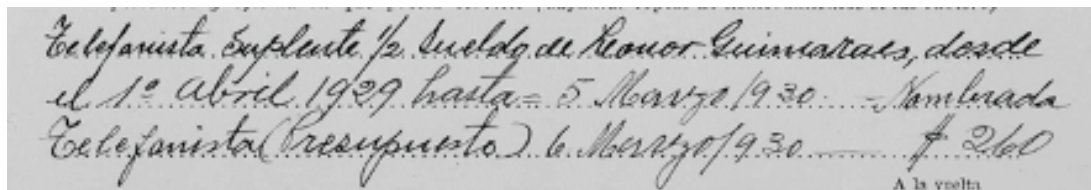 Telefonista Suplente 1/2 Sueldo de Leonor Guimaraes, desde
el 1º Abril 1929 hasta = 5 Marzo/930 - Nombrada
Telefonista (Presupuesto) 6 Marzo/930 — $ 260
A la vuelta